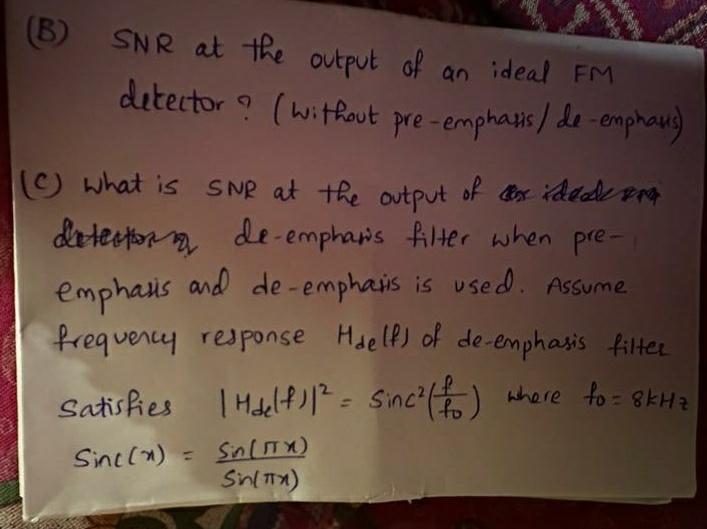 (B) SNR at the output of an ideal FM
detector? (without pre-emphasis/de-emphasis)
(C) what is SNR at the output of
de-emphasis filter when pre-
emphasis and de-emphasis is used. Assume
frequency response Hde(f) of de-emphasis filter
satisfies |Hde(f)|² = Sinc²(f/f0) where f0 = 8kHz
Sinc(x) = Sin(πx)/Sin(πx)